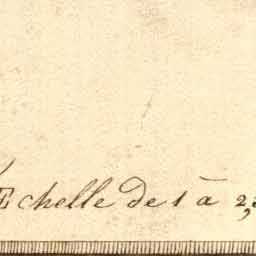 Echelle de 1 à 2,